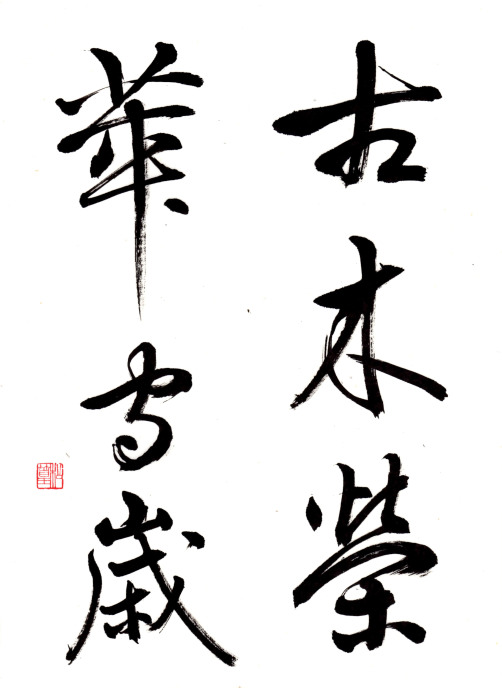 古木榮
華守歳